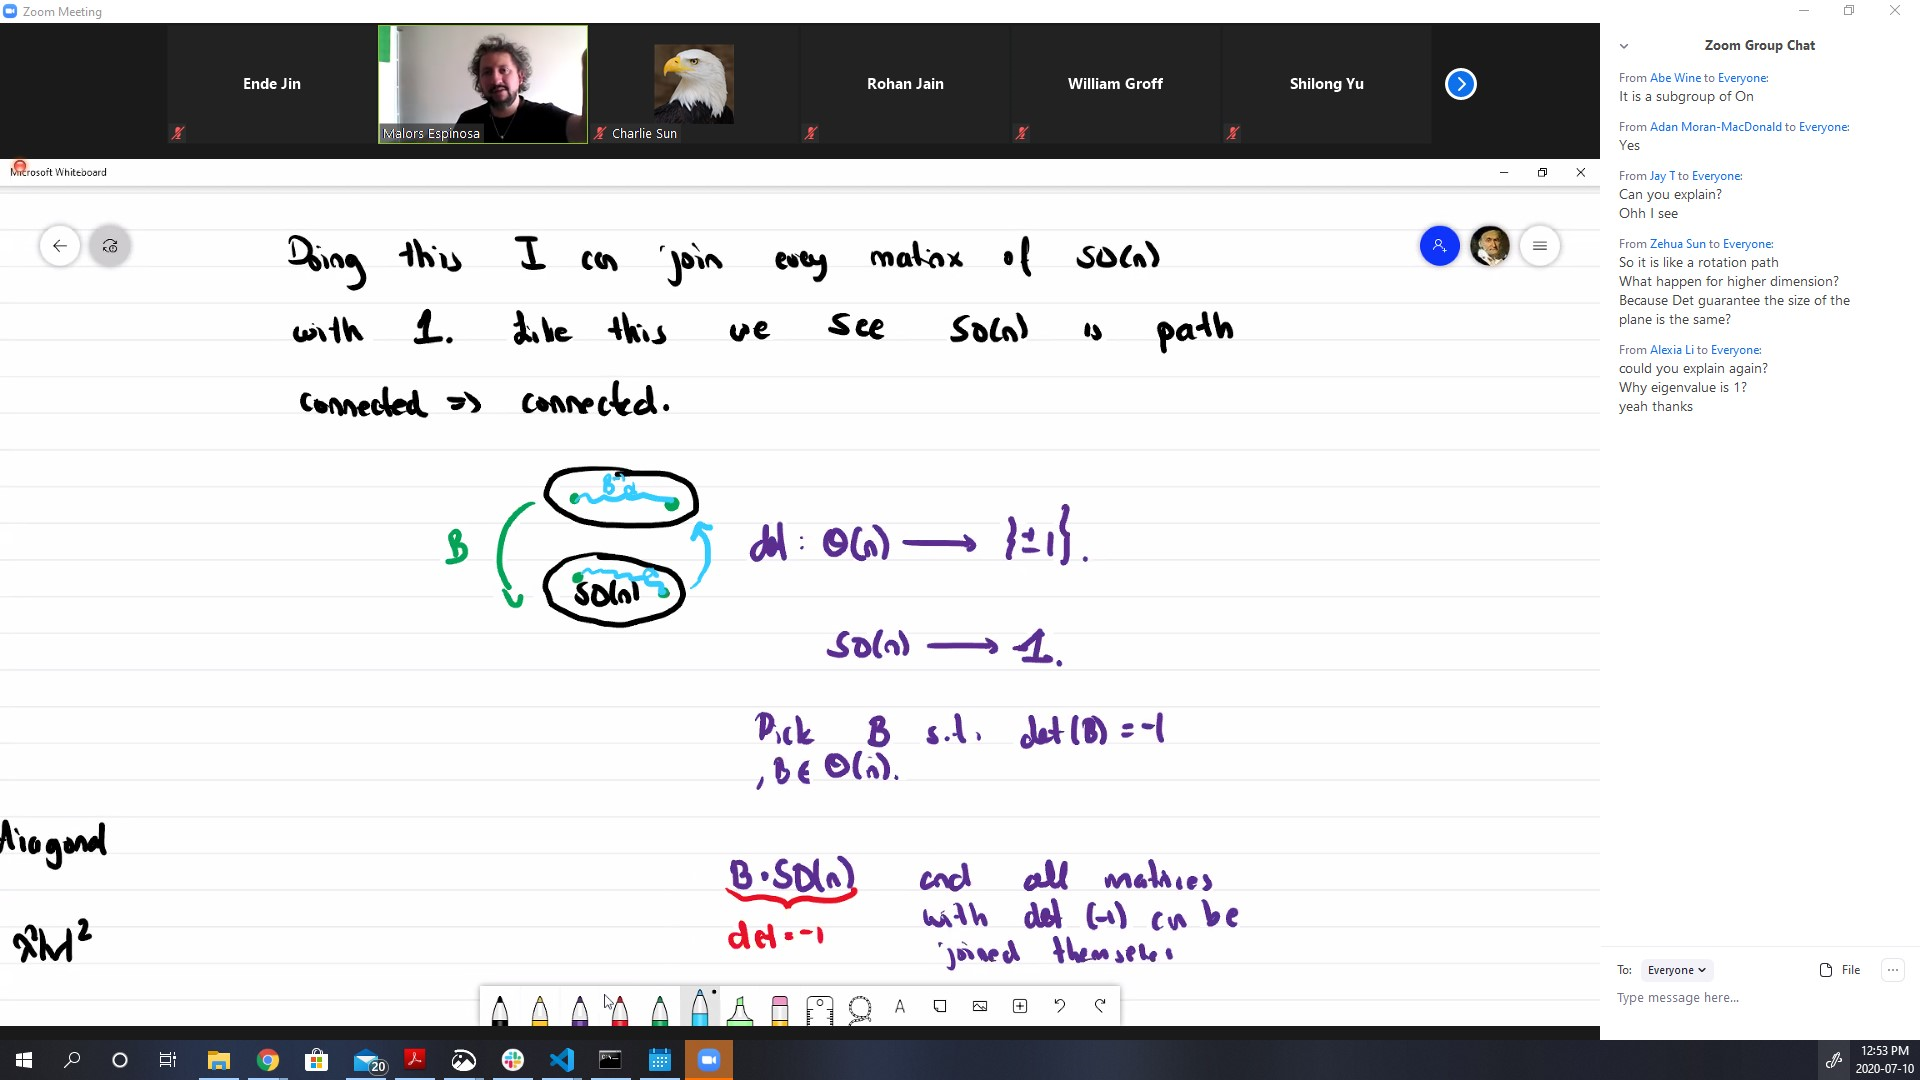 Zoom Meeting
Ende Jin
Malors Espinosa
Charlie Sun
Rohan Jain
William Groff
Shilong Yu
Microsoft Whiteboard
Doing this I can join every matrix of SO(n)
with 1. Like this we see SO(n) is path
connected => connected.
B
SO(n)
det : O(n) ⟶ {±1}.
SO(n) ⟶ 1.
Pick B s.t. det(B) = -1
, B ∈ O(n).
Diagonal
B · SO(n) and all matrices
det = -1 with det (-1) cn be
joined
Zoom Group Chat
From Abe Wine to Everyone:
It is a subgroup of On
From Adan Moran-MacDonald to Everyone:
Yes
From Jay T to Everyone:
Can you explain?
Ohh I see
From Zehua Sun to Everyone:
So it is like a rotation path
What happen for higher dimension?
Because Det guarantee the size of the
plane is the same?
From Alexia Li to Everyone:
could you explain again?
Why eigenvalue is 1?
yeah thanks
To: Everyone File
Type message here...
20
12:53 PM
2020-07-10